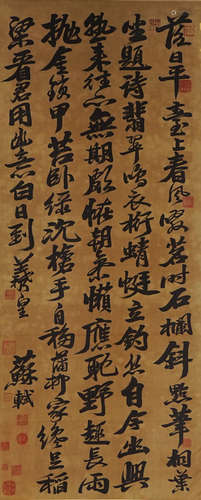 落日平臺上春風啜茗時石欄斜點筆桐葉
坐題詩翡翠鳴衣桁蜻蜓立釣絲自今幽興
熟來往亦無期頗怪朝參懶應耽野趣長雨
拋金鎖甲苔臥綠沈槍手自移蒲柳家纔足稻
粱看君用幽意白日到羲皇
蘇軾